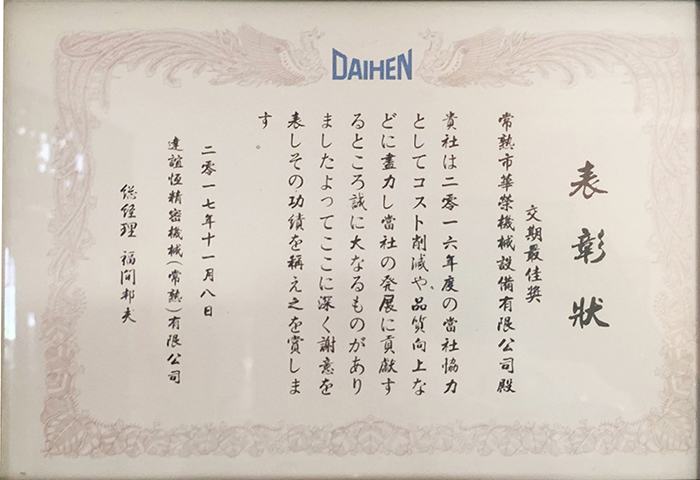 DAIHEN
表彰狀
交期最佳奖
常熟市華榮機械設備有限公司殿
貴社は二零一六年度の當社協力
としてコスト削減や、品質向上な
どに盡力し當社の発展に貢献す
るところ誠に大なるものがあり
ましたよってここに深く謝意を
表しその功績を称え之を賞しま
す。
二零一七年十一月八日
達誼恆精密機械(常熟)有限公司
総经理 福間邦夫